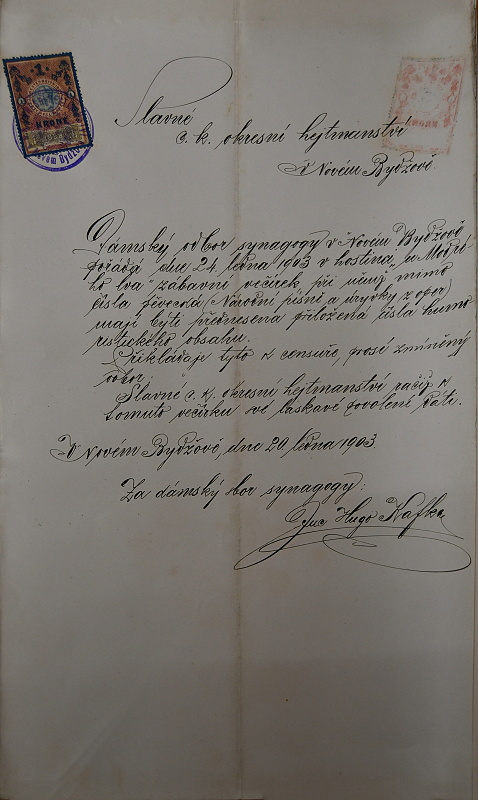 1
KRONE
KRONE
Novém Bydžo
Slavné
c. k. okresní hejtmanství
v Novém Bydžově.
Dámský odbor synagogy v Novém Bydžově
pořádá dne 24. ledna 1903 v hostinci „u Modré-
ho lva" zábavní večírek při němž mimo
čísla pěvecká (Národní písně a úryvky z oper)
mají býti přednesena přiložená čísla humo-
ristického obsahu.
Přikládaje tyto k censuře, prosí zmíněný
odbor:
Slavné c. k. okresní hejtmanství račiž k
tomuto večírku své laskavé povolení dáti.
V Novém Bydžově, dne 20. ledna 1903
Za dámský bor synagogy:
Juc Hugo Kafka